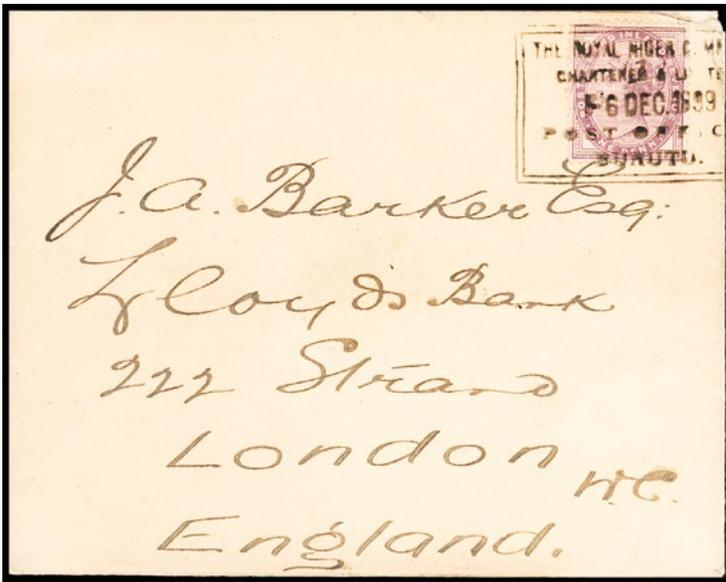 THE ROYAL NIGER C
CHARTERED & LI TE
6 DEC. 1899
POST OFF C
BURUTU.
J. A. Barker Esq:
Lloyds Bank
222 Strand
London
W.C.
England.